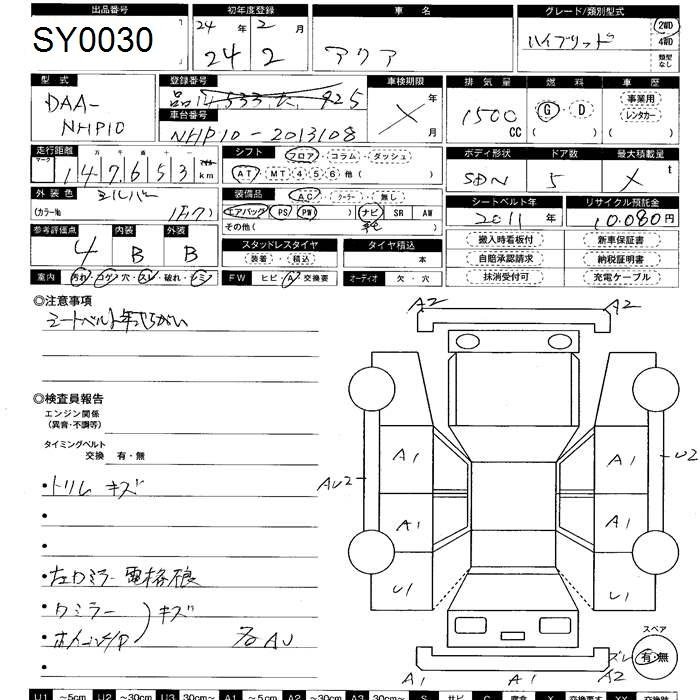 出品番号 初年度登録 車名 グレード/類別型式
SY0030 24年 2月 2WD
24 2 アクア ハイブリッド 4WD
類型なし
型式 登録番号 車検期限 排気量 燃料 車歴
DAA-NHP10 1500CC G・D 事業用
車台番号 X 年 月 レンタカー
NHP10-2013108
走行距離 シフト フロア・コラム・ダッシュ ボディ形状 ドア数 最大積載量
マーク 十 万 千 百 十 AT・MT 4 5 6 SDN 5 X t
147653km
外装色 シルバー 装備品 AC・クーラー・無し シートベルト年 リサイクル預託金
(カラーNo 1F7) エアバッグ PS PW ナビ SR AW 2011年 10,080円
その他( )
参考評価点 内装 外装 スタッドレスタイヤ タイヤ積込 搬入時看板付 新車保証書
4 B B 装着・積込 本 自賠承認請求 納税証明書
室内 汚れ・コゲ・穴・スレ・破れ・シミ FW ヒビ・A・交換要 オーディオ 欠・穴 抹消受付可 充電ケーブル
◎注意事項
シートベルト年式ちがい
◎検査員報告
エンジン関係
(異音・不調等)
タイミングベルト
交換 有・無
・トリム キズ
・
・
・左ドミラー 電格不良
・ドミラー キズ
・ホイール4P
・
各AU
A2 A2
A1 A1
AU2 U2
A1 A1
U1 U1
スペア
有・無
A1 A1 A2
U1 ～5cm U2 ～30cm U3 30cm～ A1 ～5cm A2 ～30cm A3 30cm～ S サビ C 腐食 X 交換要す XX 交換跡